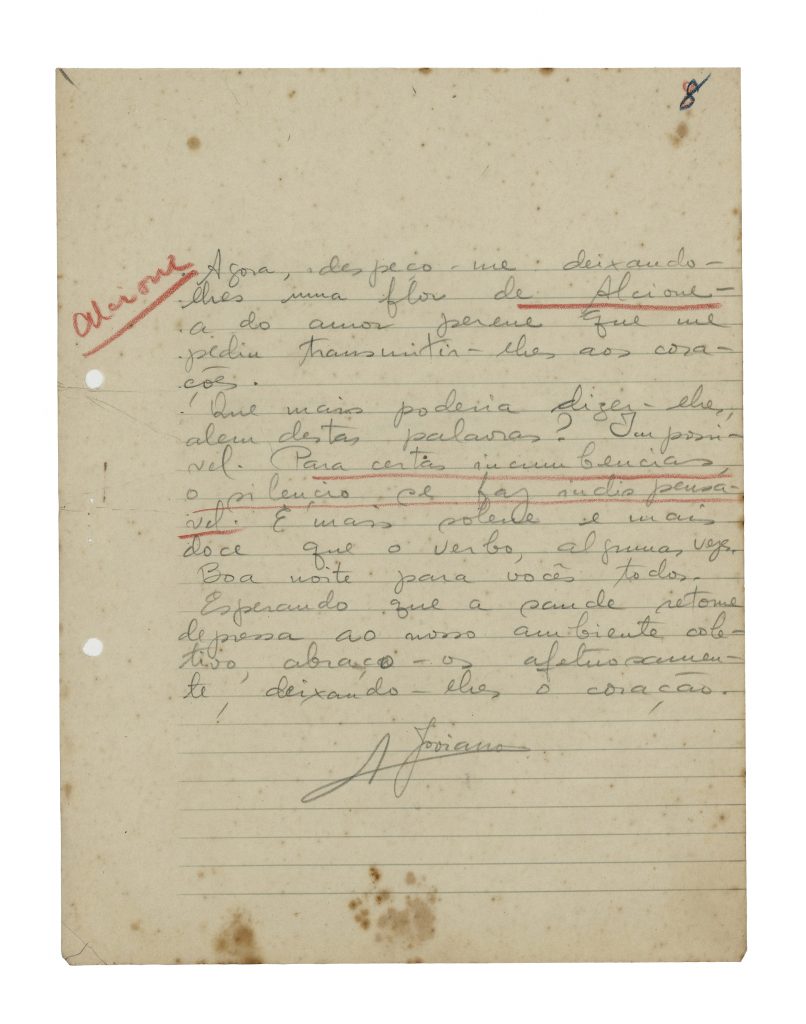 8
Alcione
Agora, despeço-me deixando-
lhes uma flor de Alcione -
a do amor perene que me
pediu transmitir-lhes aos cora-
ções.
Que mais poderia dizer-lhes,
alem destas palavras? Impossi-
vel. Para certas incumbencias,
o silencio se faz indispensá-
vel. É mais solene e mais
doce que o verbo, algumas vezes.
Boa noite para vocês todos.
Esperando que a saude retome
depressa ao nosso ambiente cole-
tivo, abraço-os afetuosamen-
te, deixando-lhes o coração.
A Joviano